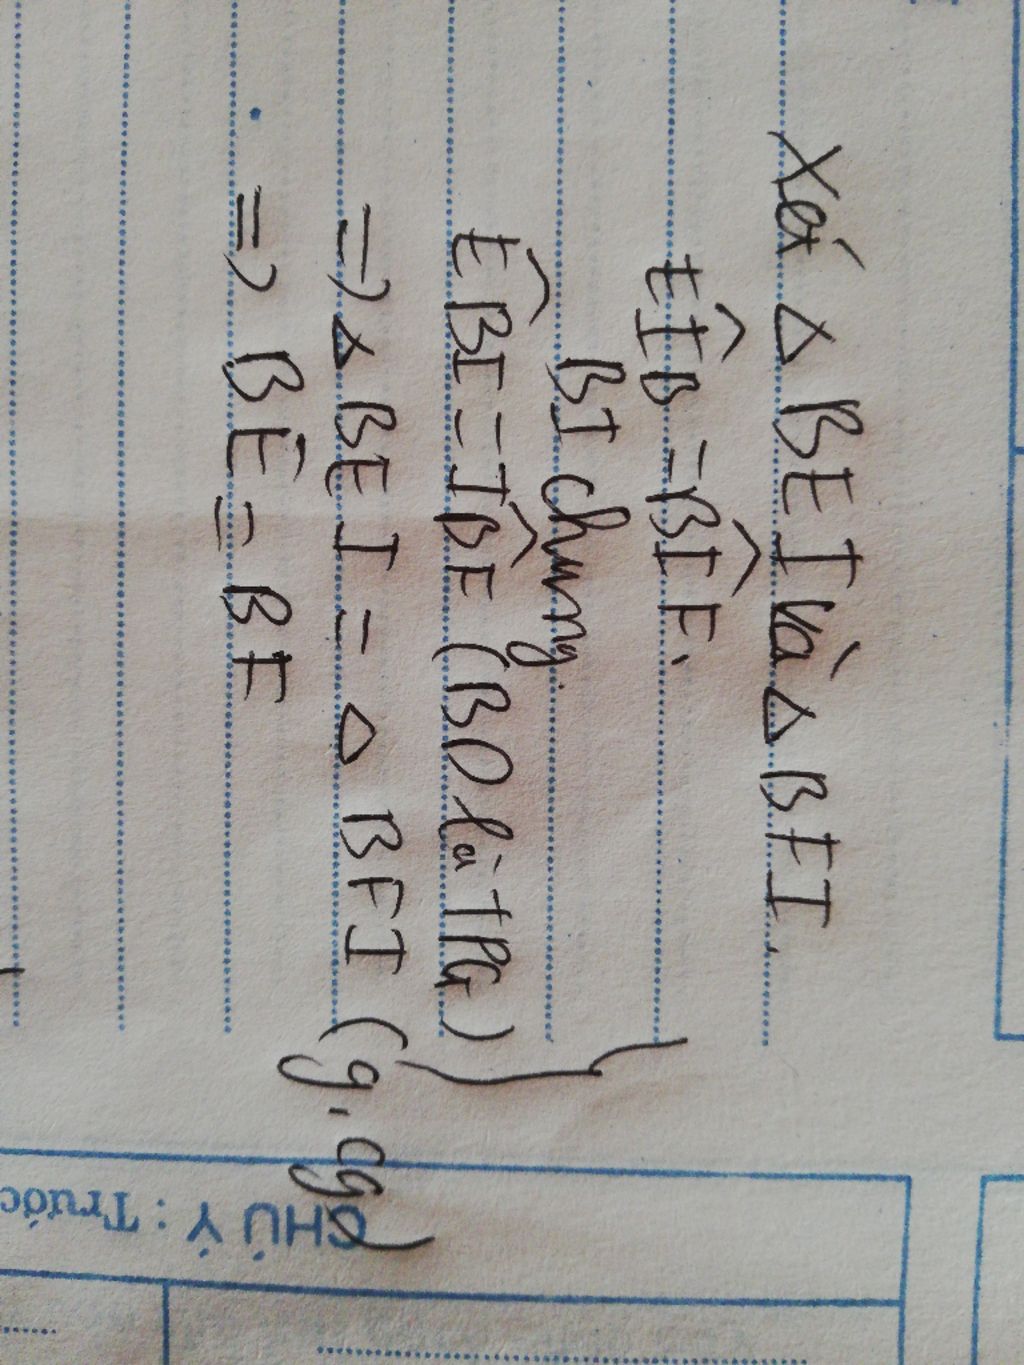 Xét △ BEI và △ BFI.
EÎB = BÎF.
BI chung.
EB̂I = IB̂F (BD là TPG)
=> △ BEI = △ BFI (g.cg)
=> BE = BF
CHÚ Ý : Trước